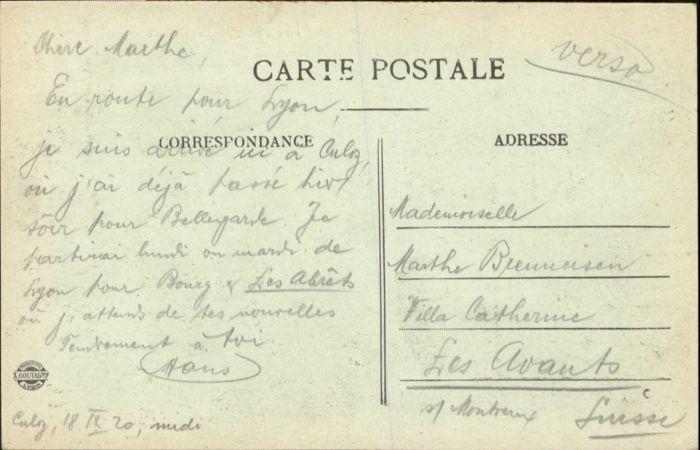 Chère Marthe,
verso
CARTE POSTALE
En route pour Lyon,
CORRESPONDANCE
je suis arrivé ici à Culoz,
où j'ai déjà passé hier
soir pour Bellegarde. Je
partirai lundi ou mardi de
Lyon pour Bourg & Les Abrêts
où j'attends de tes nouvelles
Tendrement à toi
Hans
GOUTAGNY
LYON
Culoz, 18 IX 20, midi
ADRESSE
Mademoiselle
Marthe Brenneisen
Villa Catherine
Les Avants
s/ Montreux
Suisse